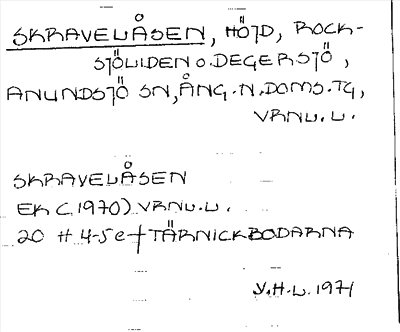 SKRAVELÅSEN, HÖJD, ROCK-
SJÖLIDEN O. DEGERSJÖ,
ANUNDSJÖ SN, ÅNG. N. DOMS. TG,
VRNL. L.
SKRAVELÅSEN
EK (1970) VRNL. L.
20 H 4-5 e-f TÄRNICKBODARNA
V.H.L. 1971